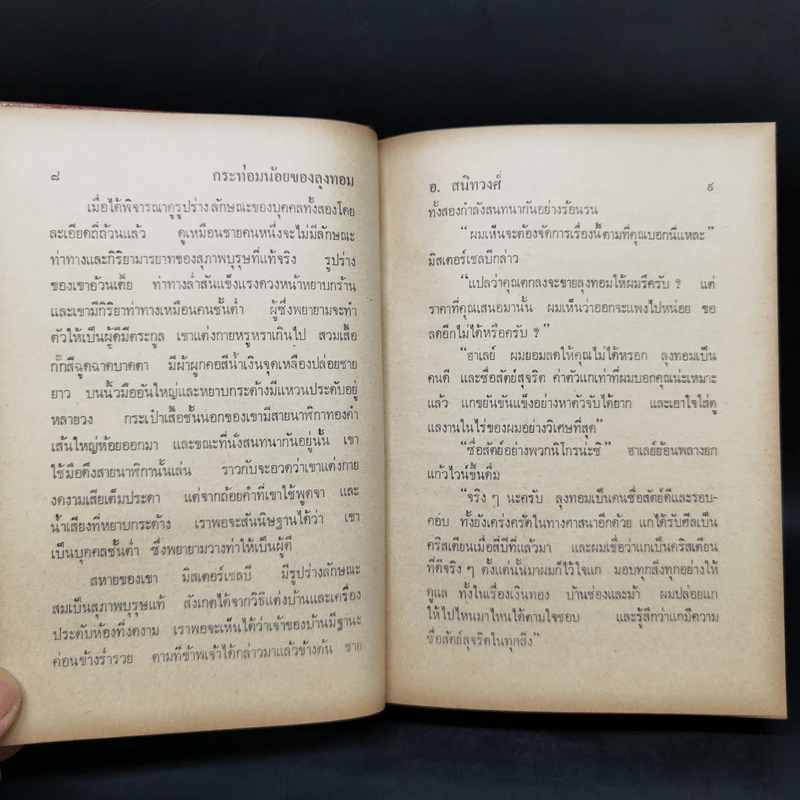 ๘ กระท่อมน้อยของลุงทอม
เมื่อได้พิจารณาดูรูปร่างลักษณะของบุคคลทั้งสองโดย
ละเอียดถี่ถ้วนแล้ว ดูเหมือนชายคนหนึ่งจะไม่มีลักษณะ
ท่าทางและกิริยามารยาทของสุภาพบุรุษที่แท้จริง รูปร่าง
ของเขาอ้วนเตี้ย ท่าทางล่ำสันแข็งแรงดวงหน้าหยาบกร้าน
และเขามีกิริยาท่าทางเหมือนคนชั้นต่ำ ผู้ซึ่งพยายามจะทำ
ตัวให้เป็นผู้ดีมีตระกูล เขาแต่งกายหรูหราเกินไป สวมเสื้อ
กั๊กสีฉูดฉาดบาดตา มีผ้าผูกคอสีน้ำเงินจุดเหลืองปล่อยชาย
ยาว บนนิ้วมืออันใหญ่และหยาบกระด้างมีแหวนประดับอยู่
หลายวง กระเป๋าเสื้อชั้นนอกของเขามีสายนาฬิกาทองคำ
เส้นใหญ่ห้อยออกมา และขณะที่นั่งสนทนากันอยู่นั้น เขา
ใช้มือดึงสายนาฬิกานั้นเล่น ราวกับจะอวดว่าเขาแต่งกาย
งดงามเสียเต็มประดา แต่จากถ้อยคำที่เขาใช้พูดจา และ
น้ำเสียงที่หยาบกระด้าง เราพอจะสันนิษฐานได้ว่า เขา
เป็นบุคคลชั้นต่ำ ซึ่งพยายามวางท่าให้เป็นผู้ดี
สหายของเขา มิสเตอร์เชลบี มีรูปร่างลักษณะ
สมเป็นสุภาพบุรุษแท้ สังเกตได้จากวิธีแต่งบ้านและเครื่อง
ประดับห้องที่งดงาม เราพอจะเห็นได้ว่าเจ้าของบ้านมีฐานะ
ค่อนข้างร่ำรวย ตามที่ข้าพเจ้าได้กล่าวมาแล้วข้างต้น ชาย
อ. สนิทวงศ์ ๙
ทั้งสองกำลังสนทนากันอย่างร้อนรน
“ผมเห็นจะต้องจัดการเรื่องนี้ตามที่คุณบอกนี่แหละ”
มิสเตอร์เชลบีกล่าว
“แปลว่าคุณตกลงจะขายลุงทอมให้ผมรึครับ ? แต่
ราคาที่คุณเสนอมานั้น ผมเห็นว่าออกจะแพงไปหน่อย ขอ
ลดอีกไม่ได้หรือครับ ?”
“ฮาเลย์ ผมยอมลดให้คุณไม่ได้หรอก ลุงทอมเป็น
คนดี และซื่อสัตย์สุจริต ค่าตัวแกเท่าที่ผมบอกคุณน่ะเหมาะ
แล้ว แกขยันขันแข็งอย่างหาตัวจับได้ยาก และเอาใจใส่ดู
แลงานในไร่ของผมอย่างวิเศษที่สุด”
“ซื่อสัตย์อย่างพวกนิโกรน่ะซิ” ฮาเลย์ย้อนพลางยก
แก้วไวน์ขึ้นดื่ม
“จริง ๆ นะครับ ลุงทอมเป็นคนซื่อสัตย์ดีและรอบ-
คอบ ทั้งยังเคร่งครัดในทางศาสนาอีกด้วย แกได้รับศีลเป็น
คริสเตียนเมื่อสี่ปีที่แล้วมา และผมเชื่อว่าแกเป็นคริสเตียน
ที่ดีจริง ๆ ตั้งแต่นั้นมาผมก็ไว้ใจแก มอบทุกสิ่งทุกอย่างให้
ดูแล ทั้งในเรื่องเงินทอง บ้านช่องและม้า ผมปล่อยแก
ให้ไปไหนมาไหนได้ตามใจชอบ และรู้สึกว่าแกมีความ
ซื่อสัตย์สุจริตในทุกสิ่ง”